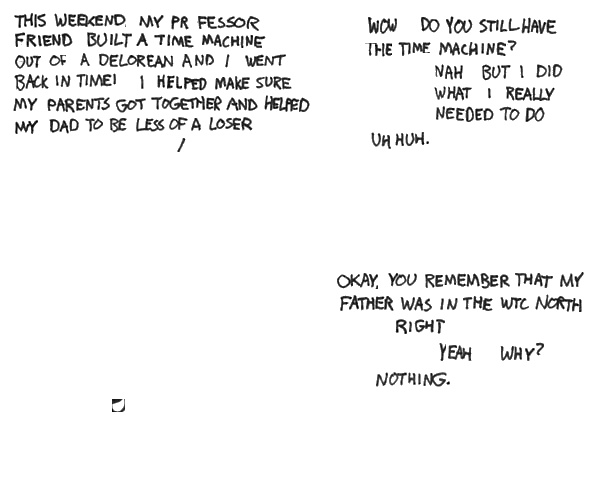 THIS WEEKEND, MY PR FESSOR
FRIEND BUILT A TIME MACHINE
OUT OF A DELOREAN AND I WENT
BACK IN TIME! I HELPED MAKE SURE
MY PARENTS GOT TOGETHER AND HELPED
MY DAD TO BE LESS OF A LOSER
WOW DO YOU STILL HAVE
THE TIME MACHINE?
NAH BUT I DID
WHAT I REALLY
NEEDED TO DO
UH HUH.
OKAY, YOU REMEMBER THAT MY
FATHER WAS IN THE WTC NORTH
RIGHT
YEAH WHY?
NOTHING.